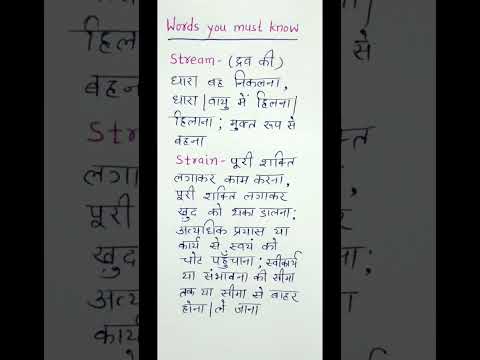 Words you must know
Stream- (द्रव की)
धारा बह निकलना,
धारा/वायु में हिलना/
हिलाना; मुक्त रूप से
बहना
Strain- पूरी शक्ति
लगाकर काम करना,
पूरी शक्ति लगाकर
खुद को थका डालना;
अत्यधिक प्रयास या
कार्य से स्वयं को
चोट पहुँचाना; स्वीकार्य
या संभावना की सीमा
तक या सीमा से बाहर
होना/ले जाना